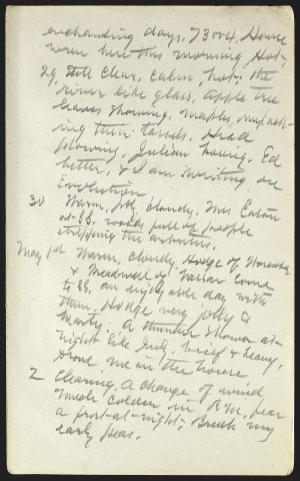 enchanting days, 73 or 4. House
warm here this morning, Hot.
29, Still clear, calm, hot; the
river like glass, apple tree
leaves showing. Maples
ing their tassels. Head
Julian home, Ed
better, & I am writing on
Evolution
30 Warm, cloudy, Mrs
at SS, woods full of people
stripping the arbutus.
May 1st Warm, cloudy, Hodge of Worcester
& Treadwell of Vassar come
to SS, an enjoyable day with
them. Hodge very jolly &
hearty. A thunder shower at
night like July, brief & heavy,
drove me in the house
2 Clearing, A change of wind
much colder in P.M. fear
a frost at night; Break my
early peas.